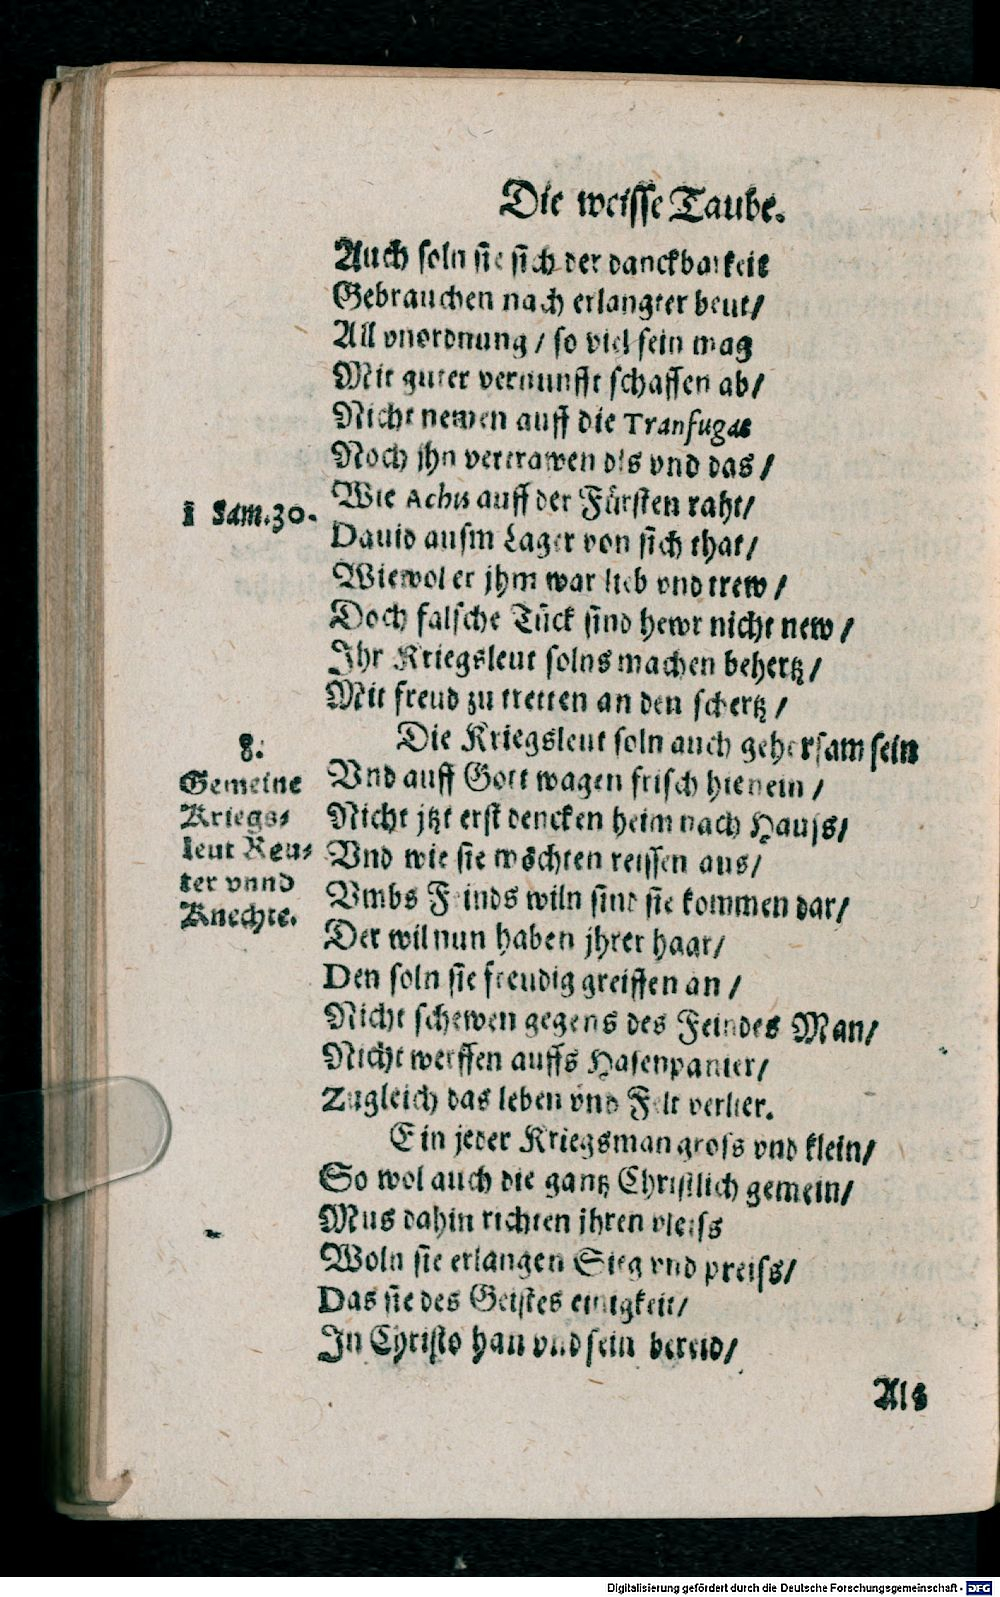 Die weisse Taube.
Auch soln sie sich der danckbarkeit
Gebrauchen nach erlangter beut/
All vnordnung / so viel sein mag
Mit guter vernunfft schaffen ab/
Nicht newen auff die Transfugas
Noch jhn vertrawen dis vnd das /
Wie Achis auff der Fürsten raht/
1 Sam. 30.
Dauid ausm Lager von sich that/
Wiewol er jhm war lieb vnd trew /
Doch falsche Tück sind hewr nicht new /
Ihr Kriegsleut solns machen behertz /
Mit freud zu tretten an den schertz /
Die Kriegsleut soln auch gehorsam sein
8.
Gemeine
Kriegs-
leut Reu-
ter vnnd
Knechte.
Vnd auff Gott wagen frisch hienein /
Nicht jtzt erst dencken heim nach Hauss/
Vnd wie sie möchten reissen aus/
Vmbs Feinds wiln sind sie kommen dar/
Der wil nun haben jhrer haar/
Den soln sie freudig greiffen an /
Nicht schewen gegens des Feindes Man/
Nicht werffen auffs Hasenpanier/
Zugleich das leben vnd Felt verlier.
Ein jeder Kriegsman gross vnd klein/
So wol auch die gantz Christlich gemein/
Mus dahin richten jhren vleiss
Woln sie erlangen Sieg vnd preiss/
Das sie des Geistes einigkeit/
In Christo han vnd sein bereid/
Als
Digitalisierung gefördert durch die Deutsche Forschungsgemeinschaft - DFG